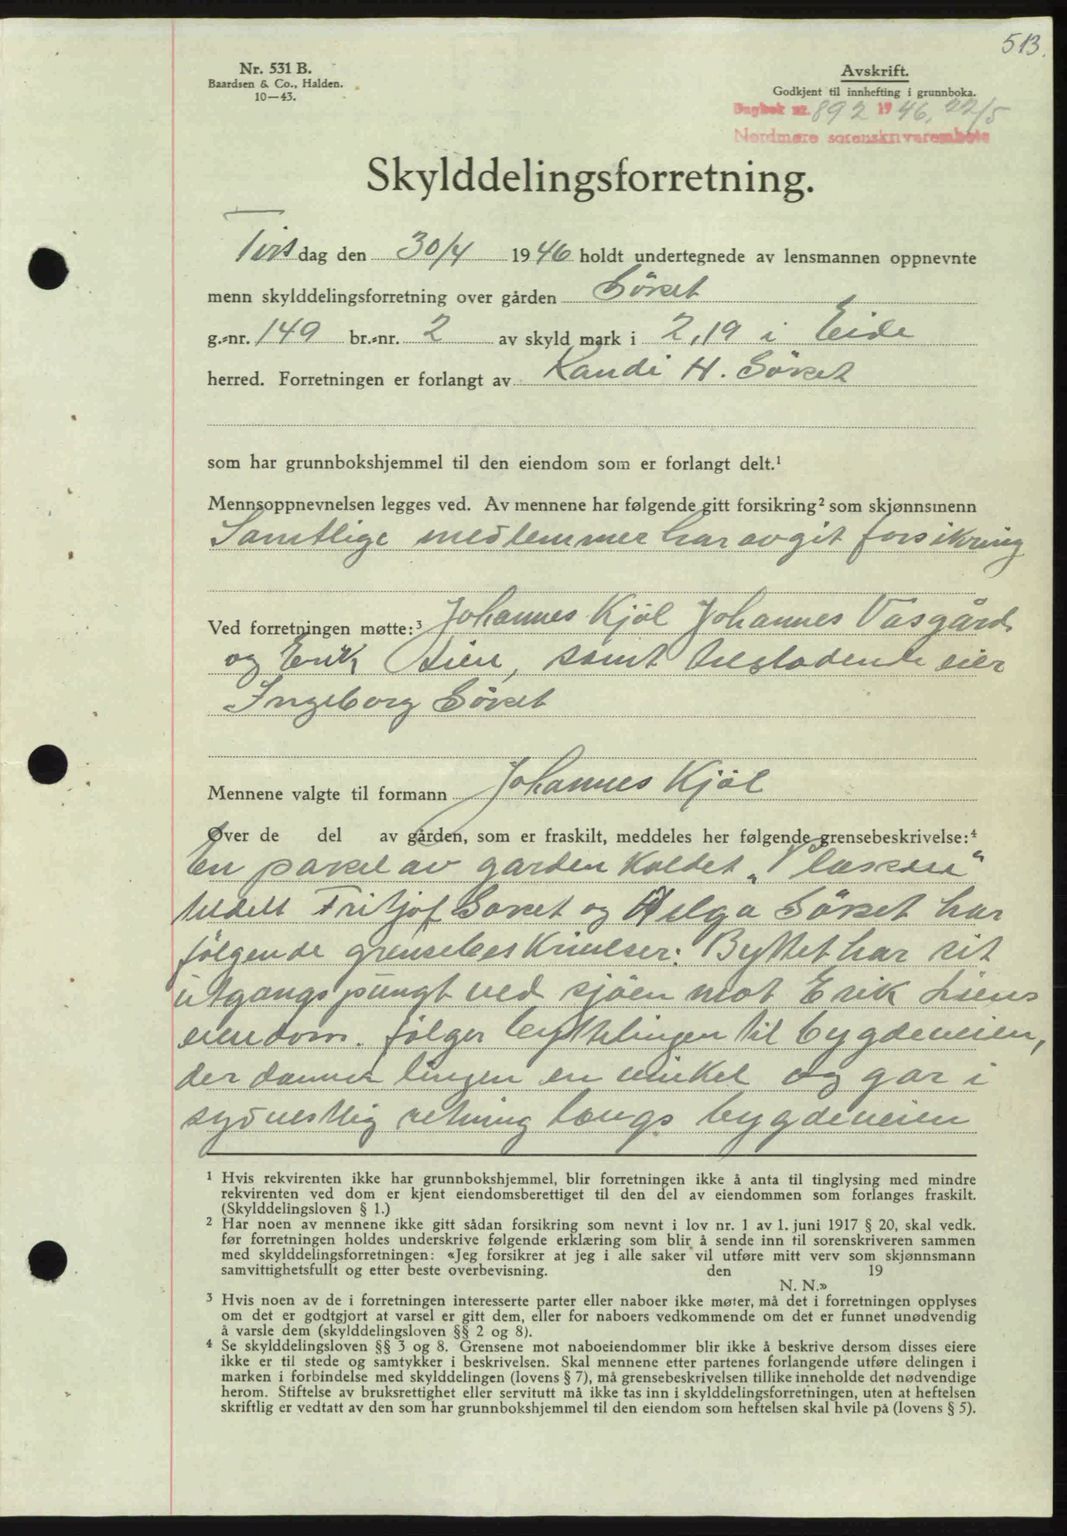 513.
Nr. 531 B.
Baardsen & Co., Halden.
10—43.
Avskrift.
Godkjent til innhefting i grunnboka.
Dagbok nr. 892 1946, 22/5
Nordmøre sorenskriverembete
Skylddelingsforretning.
Tirsdag den 30/4 1946 holdt undertegnede av lensmannen oppnevnte
menn skylddelingsforretning over gården Sövet
g.-nr. 149 br.-nr. 2 av skyld mark i 2,19 i Eide
herred. Forretningen er forlangt av Randi H. Sövet
som har grunnbokshjemmel til den eiendom som er forlangt delt.¹
Mennsoppnevnelsen legges ved. Av mennene har følgende gitt forsikring² som skjønnsmenn
Samtlige medlemmer har avgit forsikring
Ved forretningen møtte:³ Johannes Kjöl Johannes Vasgård
og Erik Lien, samt eier
Ingeborg Sövet
Mennene valgte til formann Johannes Kjöl
Over de del av gården, som er fraskilt, meddeles her følgende grensebeskrivelse:⁴
En parsel av garden Kaldet „Plassen"
tildelt Fritjof Sovet og Helga Sövet har
følgende grensebeskrivelser: Byttet har sit
utgangspungt ved sjöen mot Erik Liens
eiendom. følger byttelingen til bygdeveien,
der danner lingen en vinkel og gar i
sydvestlig retning langs bygdeveien
¹ Hvis rekvirenten ikke har grunnbokshjemmel, blir forretningen ikke å anta til tinglysing med mindre
rekvirenten ved dom er kjent eiendomsberettiget til den del av eiendommen som forlanges fraskilt.
(Skylddelingsloven § 1.)
² Har noen av mennene ikke gitt sådan forsikring som nevnt i lov nr. 1 av 1. juni 1917 § 20, skal vedk.
før forretningen holdes underskrive følgende erklæring som blir å sende inn til sorenskriveren sammen
med skylddelingsforretningen: «Jeg forsikrer at jeg i alle saker vil utføre mitt verv som skjønnsmann
samvittighetsfullt og etter beste overbevisning. den 19
N. N.»
³ Hvis noen av de i forretningen interesserte parter eller naboer ikke møter, må det i forretningen opplyses
om det er godtgjort at varsel er gitt dem, eller for naboers vedkommende om det er funnet unødvendig
å varsle dem (skylddelingsloven §§ 2 og 8).
⁴ Se skylddelingsloven §§ 3 og 8. Grensene mot naboeiendommer blir ikke å beskrive dersom disses eiere
ikke er til stede og samtykker i beskrivelsen. Skal mennene etter partenes forlangende utføre delingen i
marken i forbindelse med skylddelingen (lovens § 7), må grensebeskrivelsen tillike inneholde det nødvendige
herom. Stiftelse av bruksrettighet eller servitutt må ikke tas inn i skylddelingsforretningen, uten at heftelsen
skriftlig er vedtatt av den som har grunnbokshjemmel til den eiendom som heftelsen skal hvile på (lovens § 5).